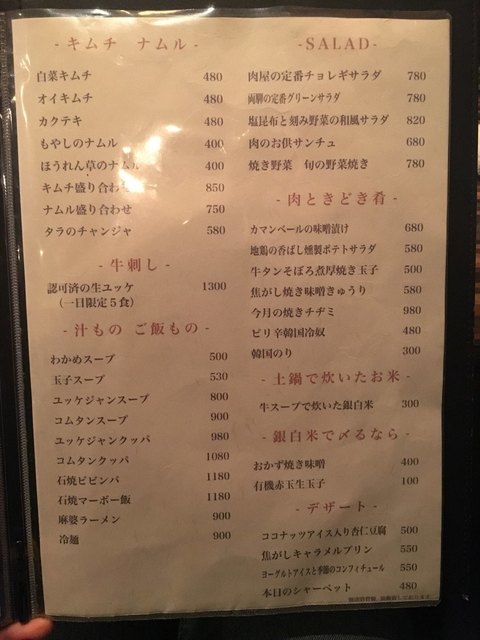 - キムチ ナムル -
白菜キムチ 480
オイキムチ 480
カクテキ 480
もやしのナムル 400
ほうれん草のナムル 400
キムチ盛り合わせ 850
ナムル盛り合わせ 750
タラのチャンジャ 580
- 牛刺し -
認可済の生ユッケ 1300
(一日限定5食)
- 汁もの ご飯もの -
わかめスープ 500
玉子スープ 530
ユッケジャンスープ 800
コムタンスープ 900
ユッケジャンクッパ 980
コムタンクッパ 1080
石焼ビビンバ 1180
石焼マーボー飯 1180
麻婆ラーメン 900
冷麺 900
- SALAD-
肉屋の定番チョレギサラダ 780
両騨の定番グリーンサラダ 780
塩昆布と刻み野菜の和風サラダ 820
肉のお供サンチュ 680
焼き野菜 旬の野菜焼き 780
- 肉ときどき肴 -
カマンベールの味噌漬け 680
地鶏の香ばし燻製ポテトサラダ 580
牛タンそぼろ煮厚焼き玉子 500
焦がし焼き味噌きゅうり 580
今月の焼きチヂミ 980
ピリ辛韓国冷奴 480
韓国のり 300
- 土鍋で炊いたお米 -
牛スープで炊いた銀白米 300
- 銀白米で〆るなら -
おかず焼き味噌 400
有機赤玉生玉子 100
- デザート -
ココナッツアイス入り杏仁豆腐 500
焦がしキャラメルプリン 550
ヨーグルトアイスと季節のコンフィチュール 550
本日のシャーベット 480